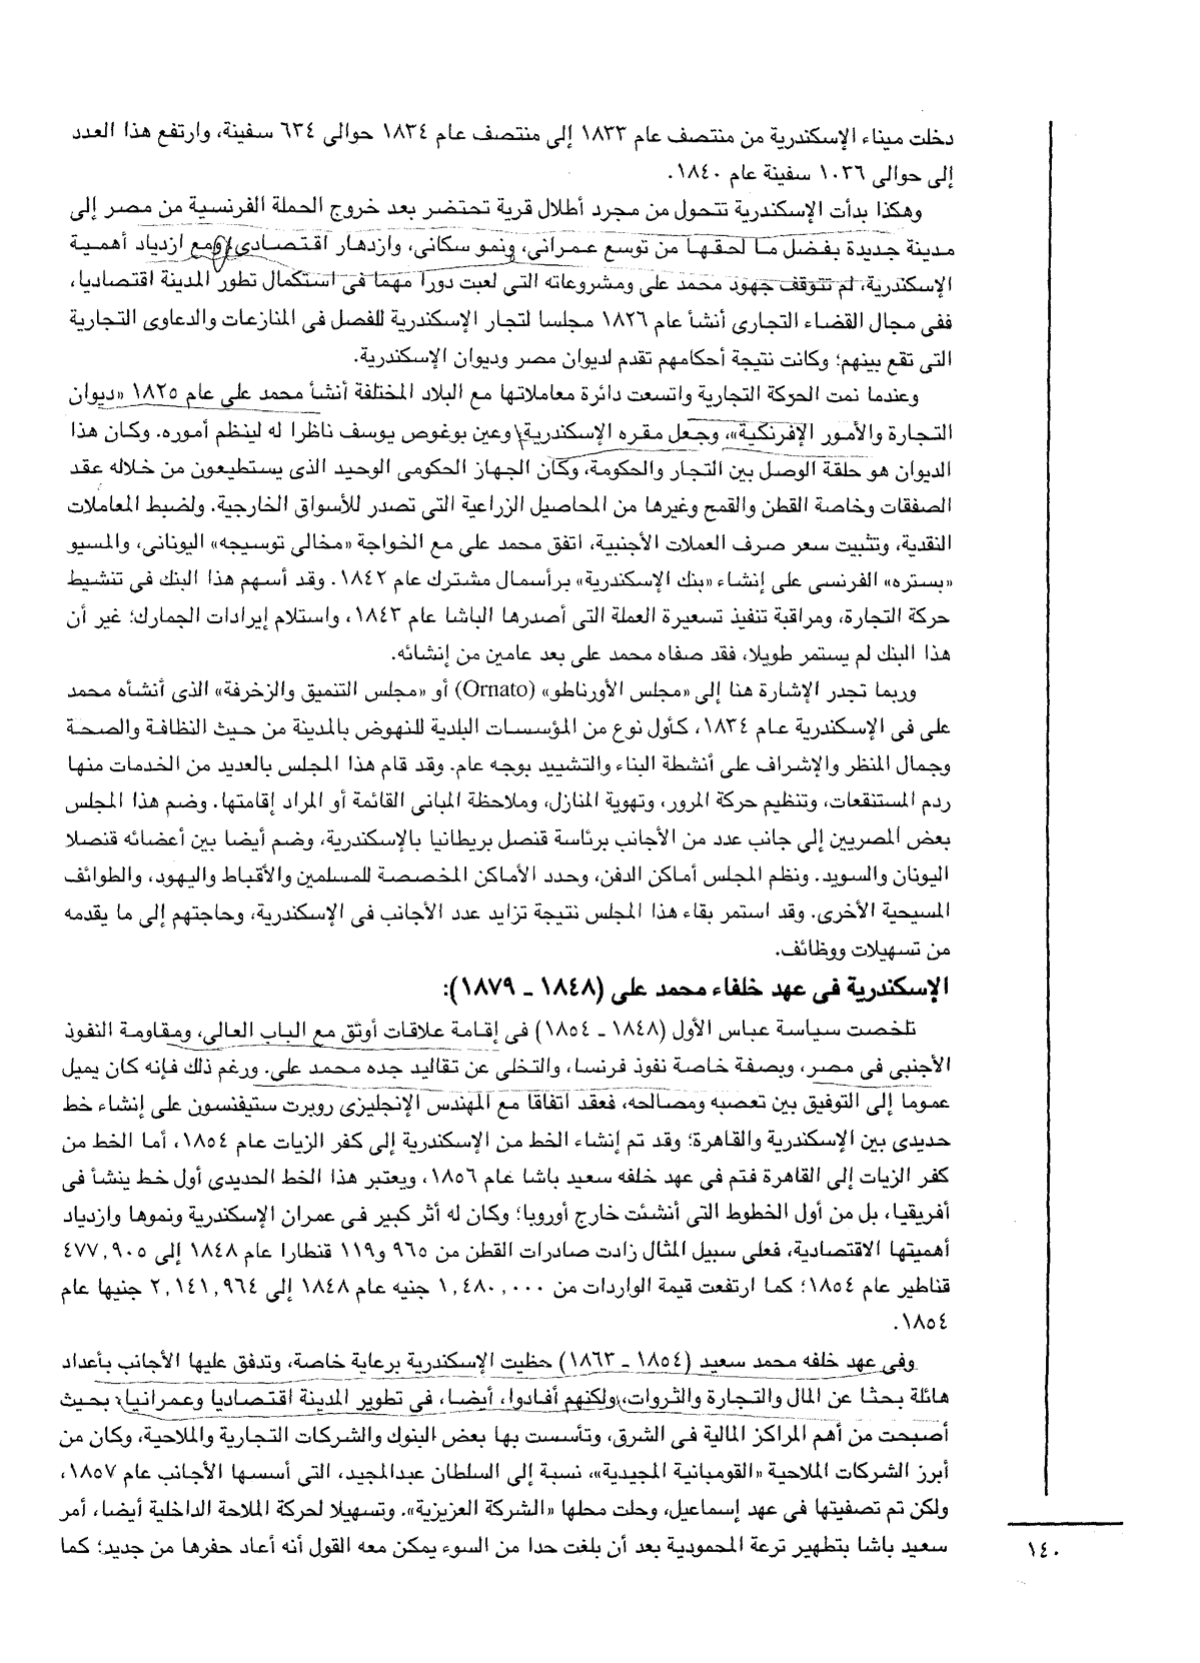 دخلت ميناء الإسكندرية من منتصف عام ١٨٣٣ إلى منتصف عام ١٨٣٤ حوالى ٦٣٤ سفينة، وارتفع هذا العدد
إلى حوالى ١٠٣٦ سفينة عام ١٨٤٠.
وهكذا بدأت الإسكندرية تتحول من مجرد أطلال قرية تحتضر بعد خروج الحملة الفرنسية من مصر إلى
مدينة جديدة بفضل ما لحقها من توسع عمرانى، ونمو سكانى، وازدهار اقتصادى، ومع ازدياد أهمية
الإسكندرية، لم تتوقف جهود محمد على ومشروعاته التى لعبت دورا مهما فى استكمال تطور المدينة اقتصاديا،
ففى مجال القضاء التجارى أنشأ عام ١٨٢٦ مجلسا لتجار الإسكندرية للفصل فى المنازعات والدعاوى التجارية
التى تقع بينهم؛ وكانت نتيجة أحكامهم تقدم لديوان مصر وديوان الإسكندرية.
وعندما نمت الحركة التجارية واتسعت دائرة معاملاتها مع البلاد المختلفة أنشأ محمد على عام ١٨٢٥ «ديوان
التجارة والأمور الإفرنكية»، وجعل مقره الإسكندرية، وعين بوغوص يوسف ناظرا له لينظم أموره. وكان هذا
الديوان هو حلقة الوصل بين التجار والحكومة، وكان الجهاز الحكومى الوحيد الذى يستطيعون من خلاله عقد
الصفقات وخاصة القطن والقمح وغيرها من المحاصيل الزراعية التى تصدر للأسواق الخارجية. ولضبط المعاملات
النقدية، وتثبيت سعر صرف العملات الأجنبية، اتفق محمد على مع الخواجة «مخالى توسيجه» اليونانى، والمسيو
«بستره» الفرنسى على إنشاء «بنك الإسكندرية» برأسمال مشترك عام ١٨٤٢. وقد أسهم هذا البنك فى تنشيط
حركة التجارة، ومراقبة تنفيذ تسعيرة العملة التى أصدرها الباشا عام ١٨٤٣، واستلام إيرادات الجمارك؛ غير أن
هذا البنك لم يستمر طويلا، فقد صفاه محمد على بعد عامين من إنشائه.
وربما تجدر الإشارة هنا إلى «مجلس الأورناطو» (Ornato) أو «مجلس التنميق والزخرفة» الذى أنشأه محمد
على فى الإسكندرية عام ١٨٣٤، كأول نوع من المؤسسات البلدية للنهوض بالمدينة من حيث النظافة والصحة
وجمال المنظر والإشراف على أنشطة البناء والتشييد بوجه عام. وقد قام هذا المجلس بالعديد من الخدمات منها
ردم المستنقعات، وتنظيم حركة المرور، وتهوية المنازل، وملاحظة المبانى القائمة أو المراد إقامتها. وضم هذا المجلس
بعض المصريين إلى جانب عدد من الأجانب برئاسة قنصل بريطانيا بالإسكندرية، وضم أيضا بين أعضائه قنصلا
اليونان والسويد. ونظم المجلس أماكن الدفن، وحدد الأماكن المخصصة للمسلمين والأقباط واليهود، والطوائف
المسيحية الأخرى. وقد استمر بقاء هذا المجلس نتيجة تزايد عدد الأجانب فى الإسكندرية، وحاجتهم إلى ما يقدمه
من تسهيلات ووظائف.
الإسكندرية فى عهد خلفاء محمد على (١٨٤٨ ـ ١٨٧٩):
تلخصت سياسة عباس الأول (١٨٤٨ ـ ١٨٥٤) فى إقامة علاقات أوثق مع الباب العالى، ومقاومة النفوذ
الأجنبى فى مصر، وبصفة خاصة نفوذ فرنسا، والتخلى عن تقاليد جده محمد على. ورغم ذلك فإنه كان يميل
عموما إلى التوفيق بين تعصبه ومصالحه، فعقد اتفاقا مع المهندس الإنجليزى روبرت ستيفنسون على إنشاء خط
حديدى بين الإسكندرية والقاهرة؛ وقد تم إنشاء الخط من الإسكندرية إلى كفر الزيات عام ١٨٥٤، أما الخط من
كفر الزيات إلى القاهرة فتم فى عهد خلفه سعيد باشا عام ١٨٥٦، ويعتبر هذا الخط الحديدى أول خط ينشأ فى
أفريقيا، بل من أول الخطوط التى أنشئت خارج أوروبا؛ وكان له أثر كبير فى عمران الإسكندرية ونموها وازدياد
أهميتها الاقتصادية، فعلى سبيل المثال زادت صادرات القطن من ٩٦٥ و١١٩ قنطارا عام ١٨٤٨ إلى ٤٧٧,٩٠٥
قناطير عام ١٨٥٤؛ كما ارتفعت قيمة الواردات من ١,٤٨٠,٠٠٠ جنيه عام ١٨٤٨ إلى ٢,١٤١,٩٦٤ جنيها عام
١٨٥٤.
وفى عهد خلفه محمد سعيد (١٨٥٤ ـ ١٨٦٣) حظيت الإسكندرية برعاية خاصة، وتدفق عليها الأجانب بأعداد
هائلة بحثا عن المال والتجارة والثروات، ولكنهم أفادوا، أيضا، فى تطوير المدينة اقتصاديا وعمرانيا، بحيث
أصبحت من أهم المراكز المالية فى الشرق، وتأسست بها بعض البنوك والشركات التجارية والملاحية، وكان من
أبرز الشركات الملاحية «القومبانية المجيدية»، نسبة إلى السلطان عبدالمجيد، التى أسسها الأجانب عام ١٨٥٧،
ولكن تم تصفيتها فى عهد إسماعيل، وحلت محلها «الشركة العزيزية». وتسهيلا لحركة الملاحة الداخلية أيضا، أمر
سعيد باشا بتطهير ترعة المحمودية بعد أن بلغت حدا من السوء يمكن معه القول أنه أعاد حفرها من جديد؛ كما
١٤٠